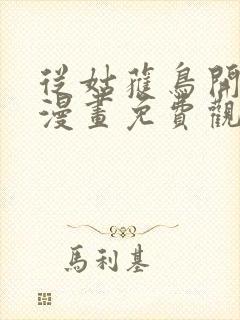 從姑蒱鳥開
漫畫免費觀
馬利基